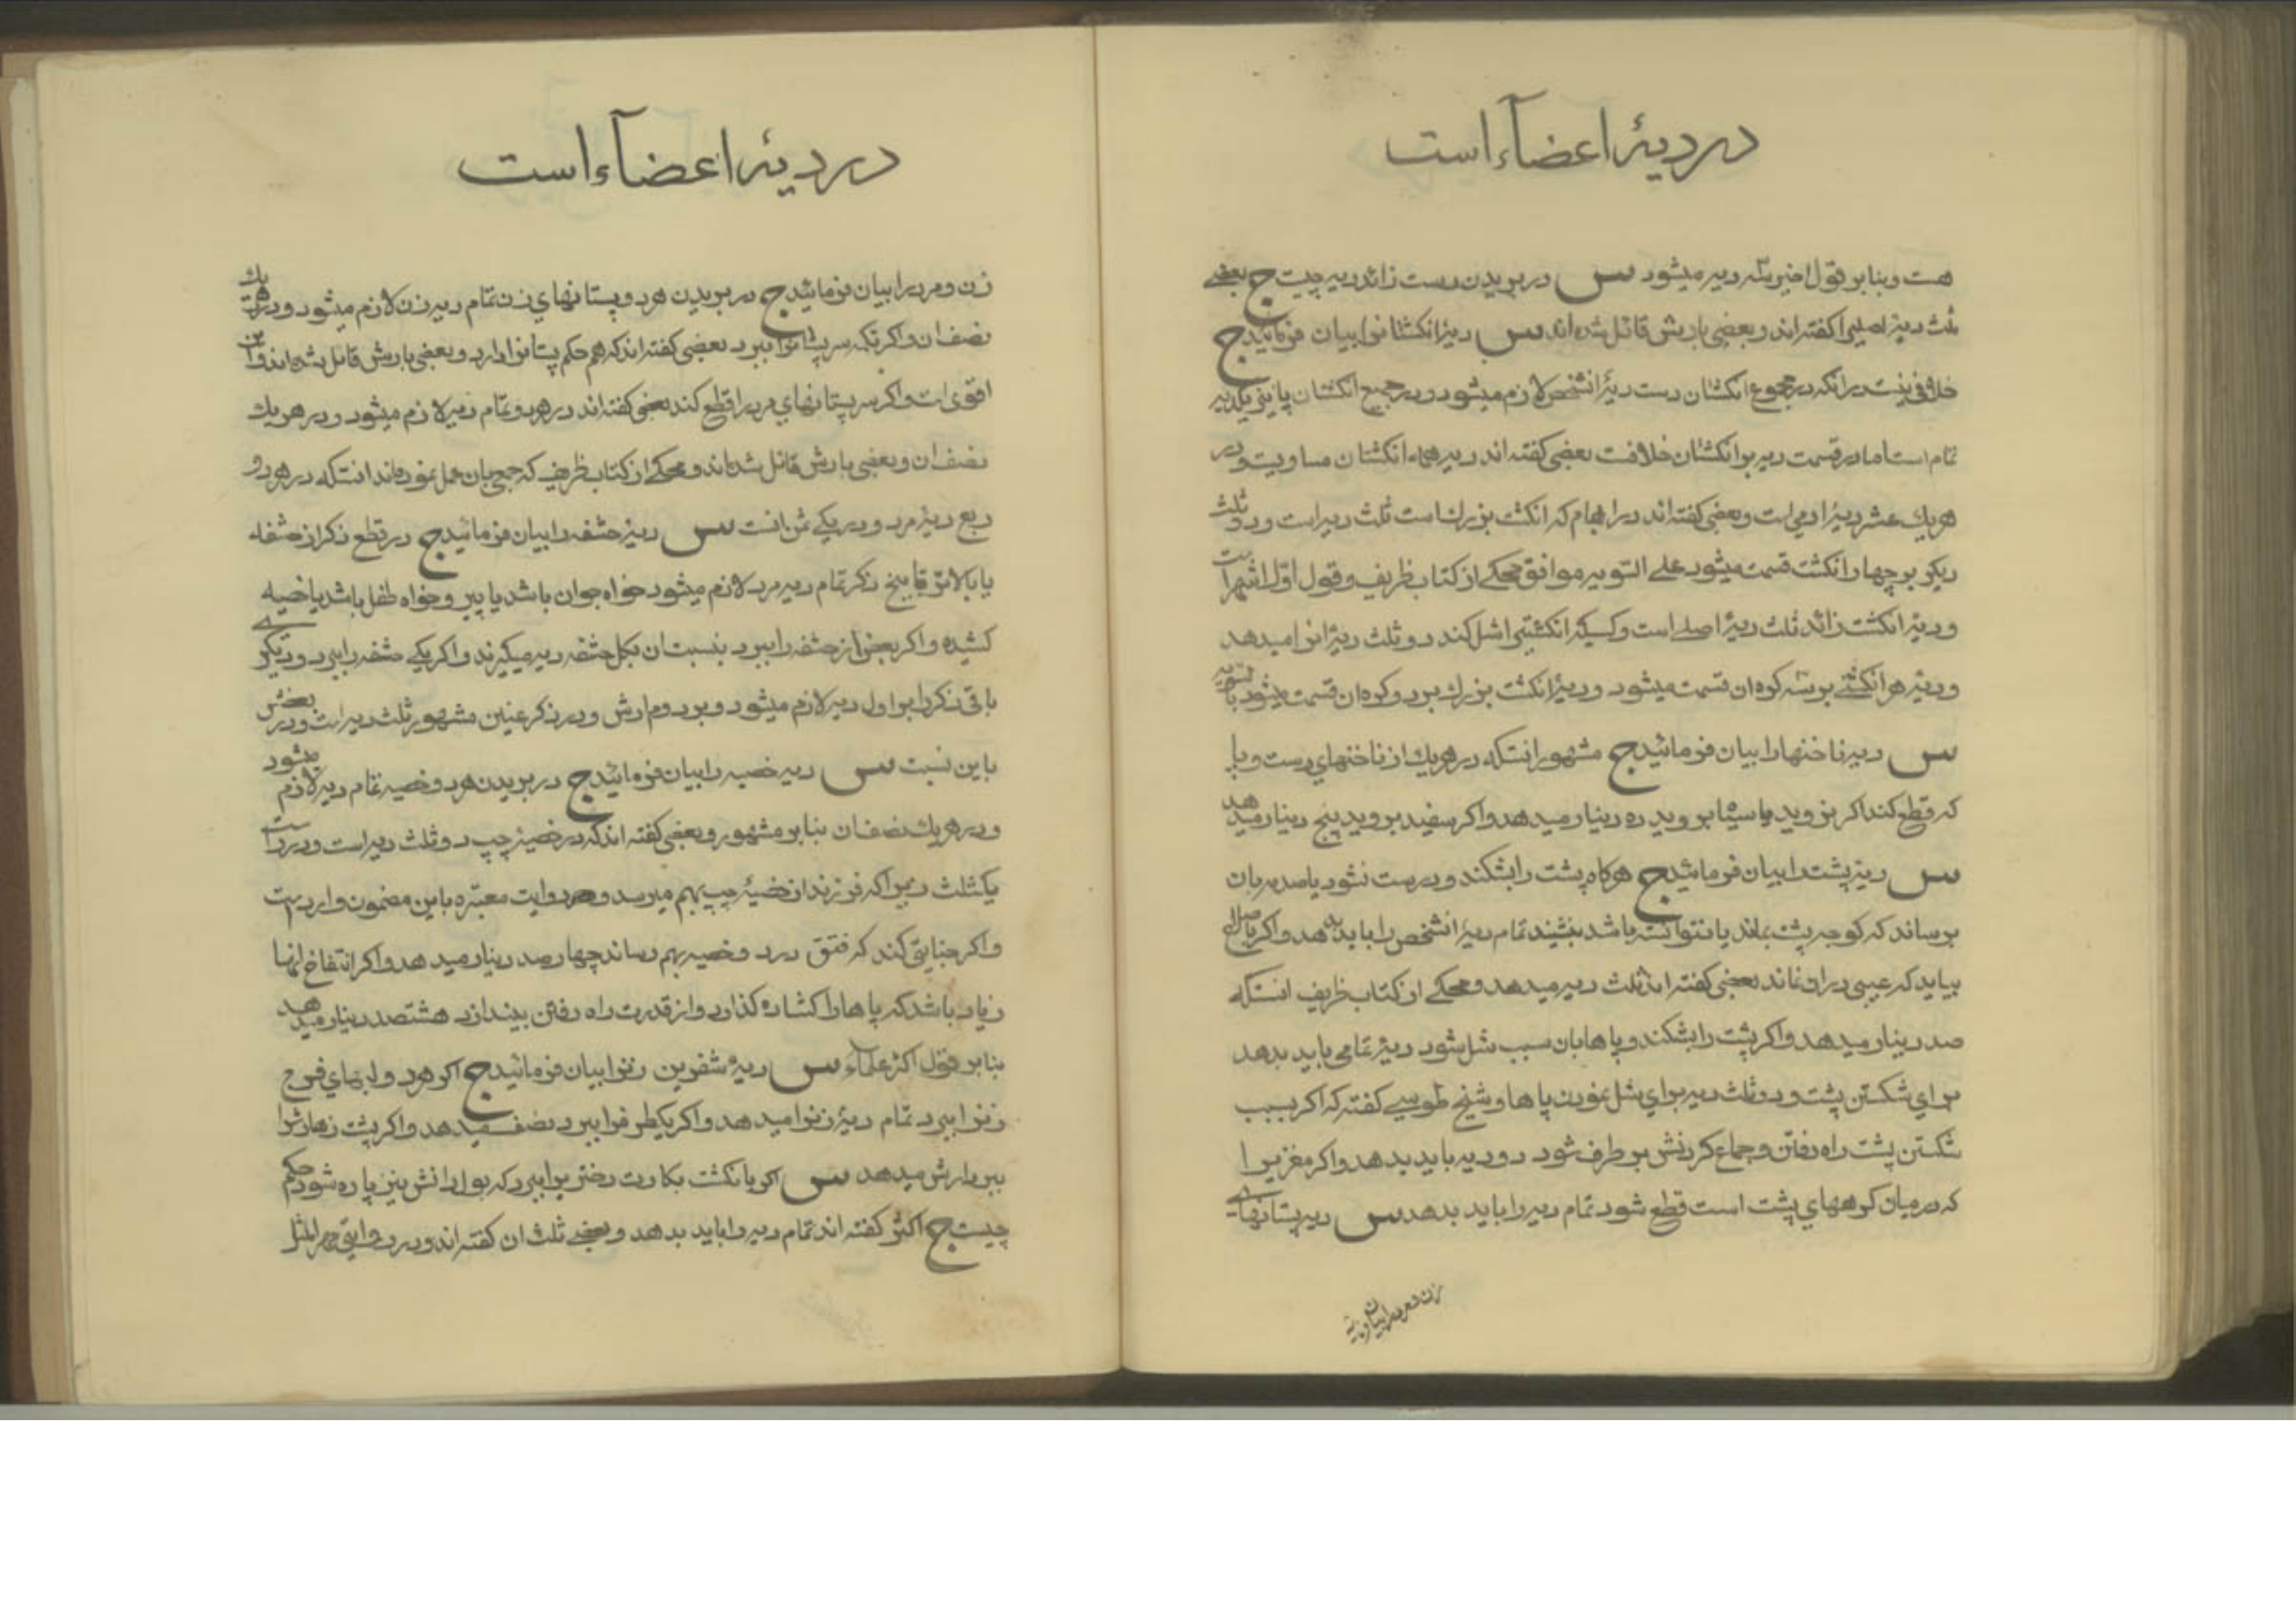 در دیۀ اعضآء است
هست و بنابر قول اخیر سه دیه میشود س در بریدن دست زائد دیه چیست ج بعضے
ثلث دیۀ اصلی را کفته اند و بعضی بارش قائل شده اند س دیۀ انکشتانرا بیان فرمائید ج
خلافی نیست در انکه در مجموع انکشتان دست دیۀ انشخص لازم میشود و در جمیع انکشتان پا نیز یکدیه
تمام است اما در قسمت دیه بر انکشتان خلافست بعضی کفته اند دیه همه انکشتان مساویست و در
هر یك عشر دیۀ ادمی است و بعضی کفته اند در ابهام که انکشت بزرك است ثلث دیه است و دو ثلث
دیکر بر چهار انکشت قسمت میشود علے التویه موافق محکے از کتاب ظریف و قول اوّل اشهر است
و دیۀ انکشت زائد ثلث دیۀ اصلے است و کسیکه انکشتی را شل کند دو ثلث دیۀ انرا میدهد
و دیۀ هر انکشتے بر سه کره ان قسمت میشود و دیۀ انکشت بزرك بر دو کره ان قسمت میشود بالسّویه
س دیه ناخنها را بیان فرمائید ج مشهور انستکه در هر یك از ناخنهای دست و پا
که قطع کند اکر نروید یا سیاه بروید ده دینار میدهد و اکر سفید بروید پنج دینار میدهد
س دیۀ پشت را بیان فرمائید ج هرکاه پشت را بشکند و درست نشود یا صدمه بان
برساند که کوجه پشت بماند یا نتوانسته باشد بنشیند تمام دیۀ انشخص را باید بدهد و اکر باصلاح
بیاید که عیبی در ان نماند بعضی کفته اند ثلث دیه میدهد و محکے از کتاب ظریف انستکه
صد دینار میدهد و اکر پشت را بشکند و پاها بان سبب شل شود دیۀ تمامی باید بدهد
برای شکستن پشت و دو ثلث دیه برای شل نمودن پاها و شیخ طوسے کفته که اکر بسبب
شکستن پشت راه رفتن و جماع کردنش بر طرف شود دو دیه باید بدهد و اکر مغزی را
که در میان کرههای پشت است قطع شود تمام دیه را باید بدهد س دیه پستانهاے
زن و مرد را بیان
در دیۀ اعضآء است
زن و مرد را بیان فرمائید ج در بریدن هر دو پستانهای زن تمام دیه زن لازم میشود و در هر یك
نصف ان و اکر تکه سر پستانرا ببرد بعضی کفته اند که هم حکم پستانرا دارد و بعضی بارش قائل شده اند و این
اقوی است و اکر سر پستانهای مرد را قطع کند بعضی کفته اند در هر دو تمام دیه لازم میشود و در هر یك
نصف ان و بعضی بارش قائل شده اند و محکے از کتاب ظریف که جمعی بان عمل نموده اند انستکه در هر دو
ربع دیۀ مرد و در یکے ثمن انست س دیۀ حشفه را بیان فرمائید ج در قطع ذکر از حشفه
یا بالاتر تا بیخ ذکر تمام دیه مرد لازم میشود خواه جوان باشد یا پیر و خواه طفل باشد یا خصیه
کشیده و اکر بعضی از حشفه را ببرد بنسبت ان بکل حشفه دیه میکیرند و اکر یکے حشفه را ببرد و دیکرے
باقی ذکر را بر اول دیه لازم میشود و بر دوم ارش و در ذکر عنین مشهور ثلث دیه است و در بعضش
باین نسبت س دیه خصیه را بیان فرمائید ج در بریدن هر دو خصیه تمام دیه لازم میشود
و در هر یك نصف ان بنابر مشهور و بعضی کفته اند که در خصیۀ چپ دو ثلث دیه است و در راست
یکثلث دیه زیرا که فرزند از خصیۀ چپ بهم میرسد و هر دو روایت معتبره باین مضمون وارد است
و اکر جنایتی کند که فتق در دو خصیه بهم رساند چهار صد دینار میدهد و اکر انتفاخ انها
زیاد باشد که پاها را کشاده کذارد و از قدرت راه رفتن بیندازد هشتصد دینار میدهد
بنابر قول اکثر علمآء س دیۀ شفرین زنرا بیان فرمائید ج اکر هر دو لبهای فرج
زنرا ببرد تمام دیۀ زنرا میدهد و اکر یکطرفرا ببرد نصف میدهد و اکر پشت زهارشرا
ببرد ارش میدهد س اکر بانکشت بکارت دختریرا ببرد که بول دانش نیز پاره شود حکم
چیست ج اکثر کفته اند تمام دیه را باید بدهد و بعضے ثلث ان کفته اند و در روایتی مهر المثل